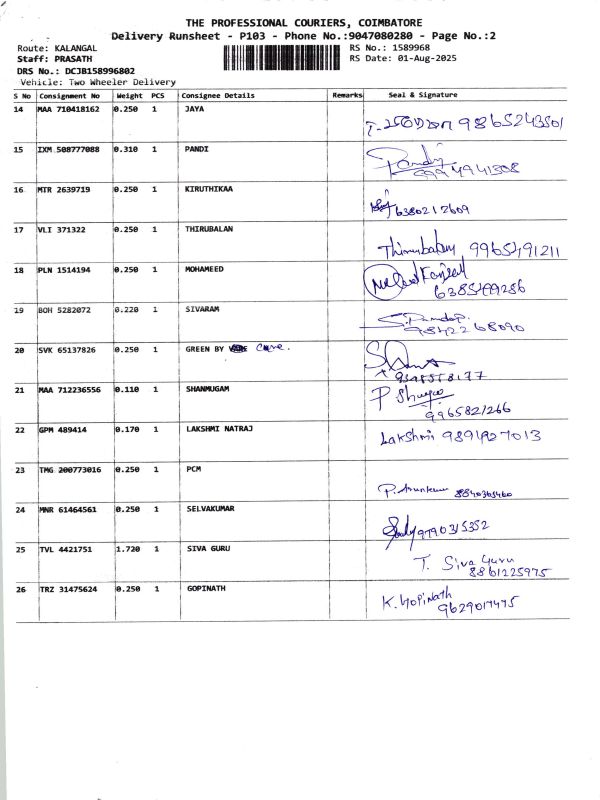 THE PROFESSIONAL COURIERS, COIMBATORE
Delivery Runsheet - P103 - Phone No.:9047080280 - Page No.:2
Route: KALANGAL RS No.: 1589968
Staff: PRASATH RS Date: 01-Aug-2025
DRS No.: DCJB158996802
Vehicle: Two Wheeler Delivery
S No Consignment No Weight PCS Consignee Details Remarks Seal & Signature
14 MAA 710418162 0.250 1 JAYA 9865243501
15 IXM 508777088 0.310 1 PANDI Pandi
16 MTR 2639719 0.250 1 KIRUTHIKAA 6380212609
17 VLI 371322 0.250 1 THIRUBALAN 9965491211
18 PLN 1514194 0.250 1 MOHAMEED
19 BOH 5282072 0.220 1 SIVARAM 9842268090
20 SVK 65137826 0.250 1 GREEN BY
21 MAA 712236556 0.110 1 SHANMUGAM 9965821266
22 GPM 489414 0.170 1 LAKSHMI NATRAJ Lakshmi
23 TMG 200773016 0.250 1 PCM
24 MNR 61464561 0.250 1 SELVAKUMAR 9790315352
25 TVL 4421751 1.720 1 SIVA GURU T. Siva Guru
8861225975
26 TRZ 31475624 0.250 1 GOPINATH K. Gopinath
9629017475